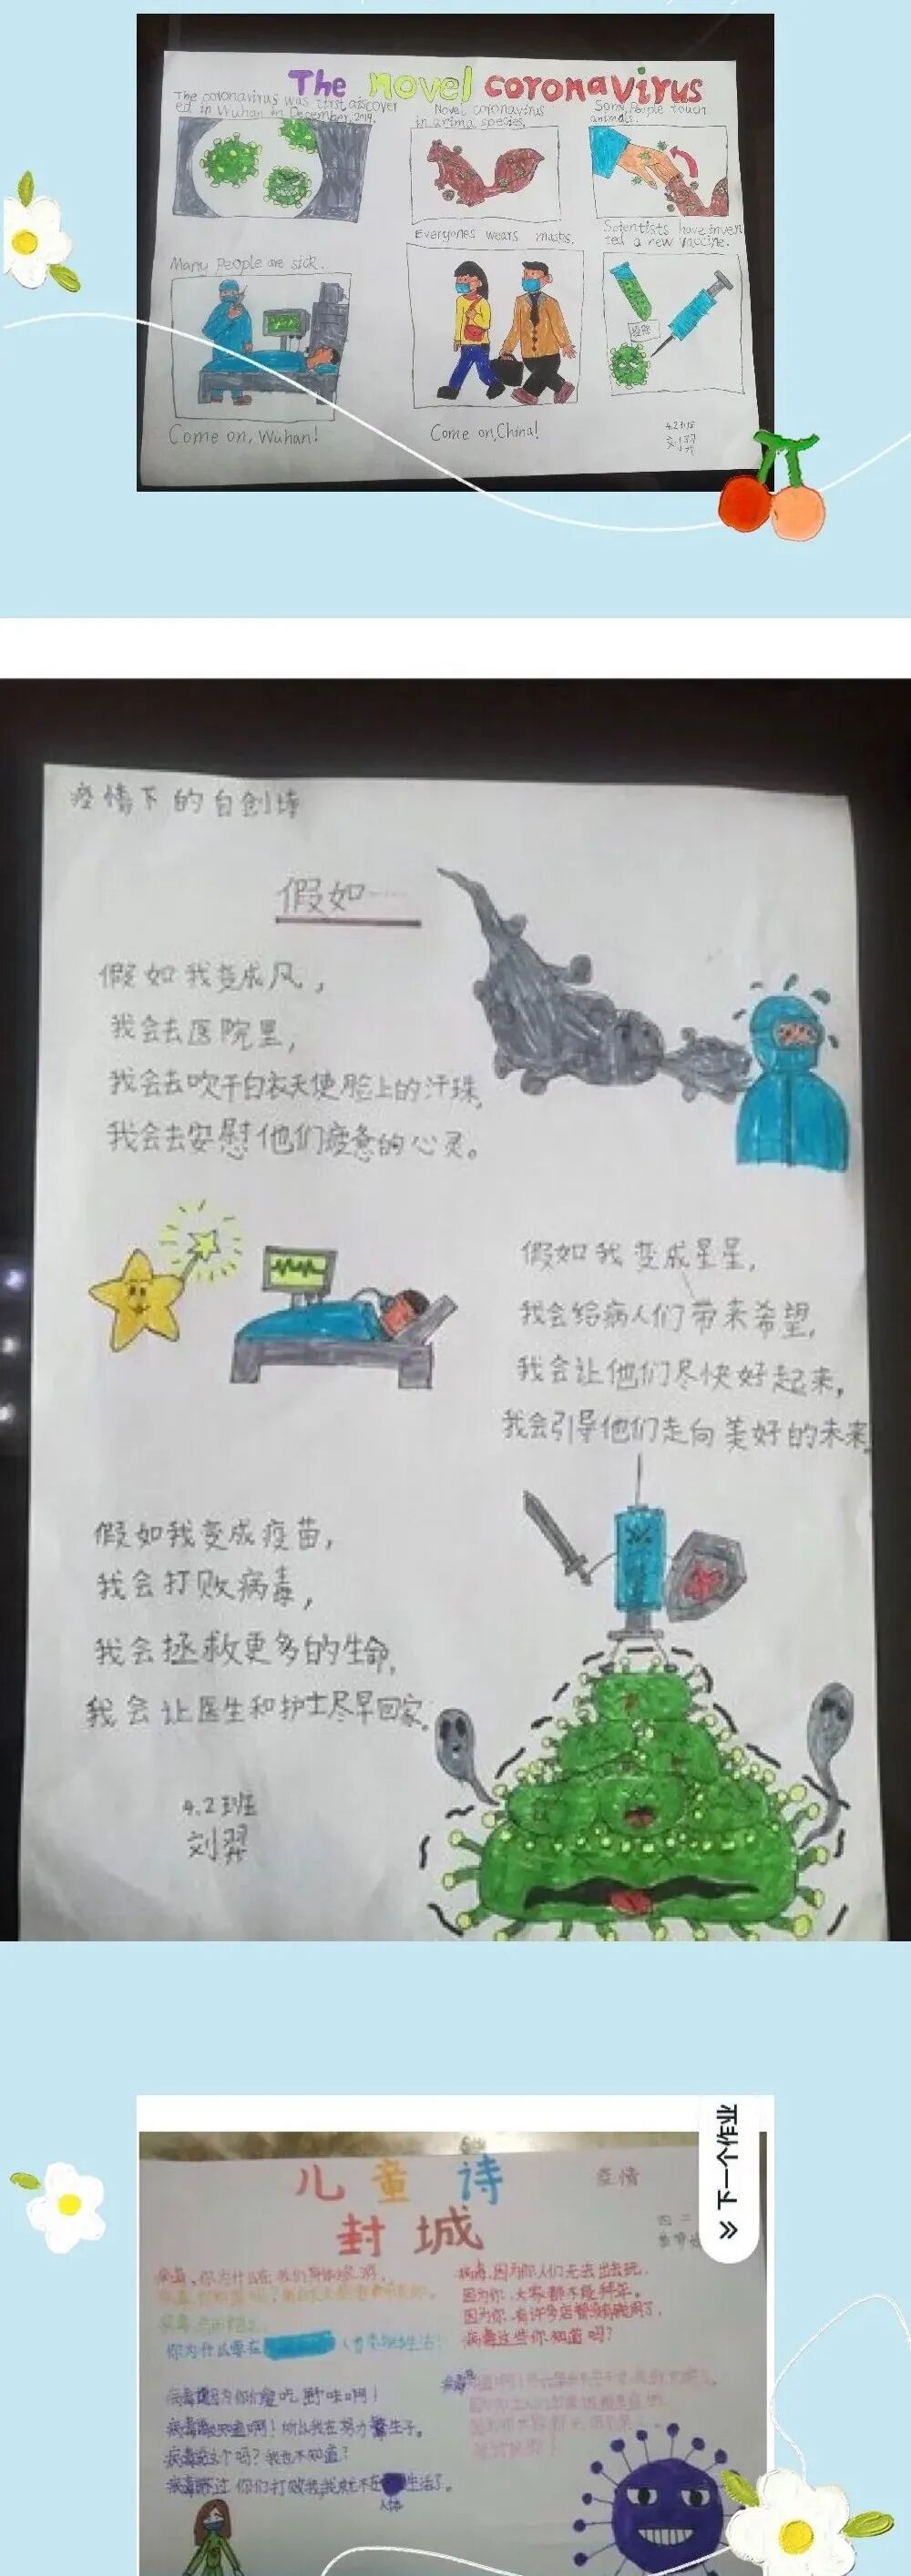 The novel coronavirus
The coronavirus was first discover
ed in Wuhan in December, 2019.
Novel coronavirus
in anima species.
Some People touch
animals.
Many People are sick.
Everyones wears masks.
Scientists have inven
ted a new vaccine.
疫苗
Come on, Wuhan!
Come on, China!
4.2班
刘羿
疫情下的自创诗
假如……
假如我变成风，
我会去医院里，
我会去吹干白衣天使脸上的汗珠，
我会去安慰他们疲惫的心灵。
假如我变成星星，
我会给病人们带来希望，
我会让他们尽快好起来，
我会引导他们走向美好的未来。
假如我变成疫苗，
我会打败病毒，
我会拯救更多的生命，
我会让医生和护士尽早回家。
4.2班
刘羿
下一个作品
儿童诗
疫情
封城
四 二
病毒，你为什么在我们身体旅游，
你为什么要在
生活？
病毒，因为你人们无法出去玩，
因为你，大家都不能拜年。
因为你，有许多店都
病毒这些你知道吗？
因为你们爱吃野味啊！
啊！所以我在努力繁生子。
这个吗？我也不知道？
你们打败我，我就不在
生活了。
人体